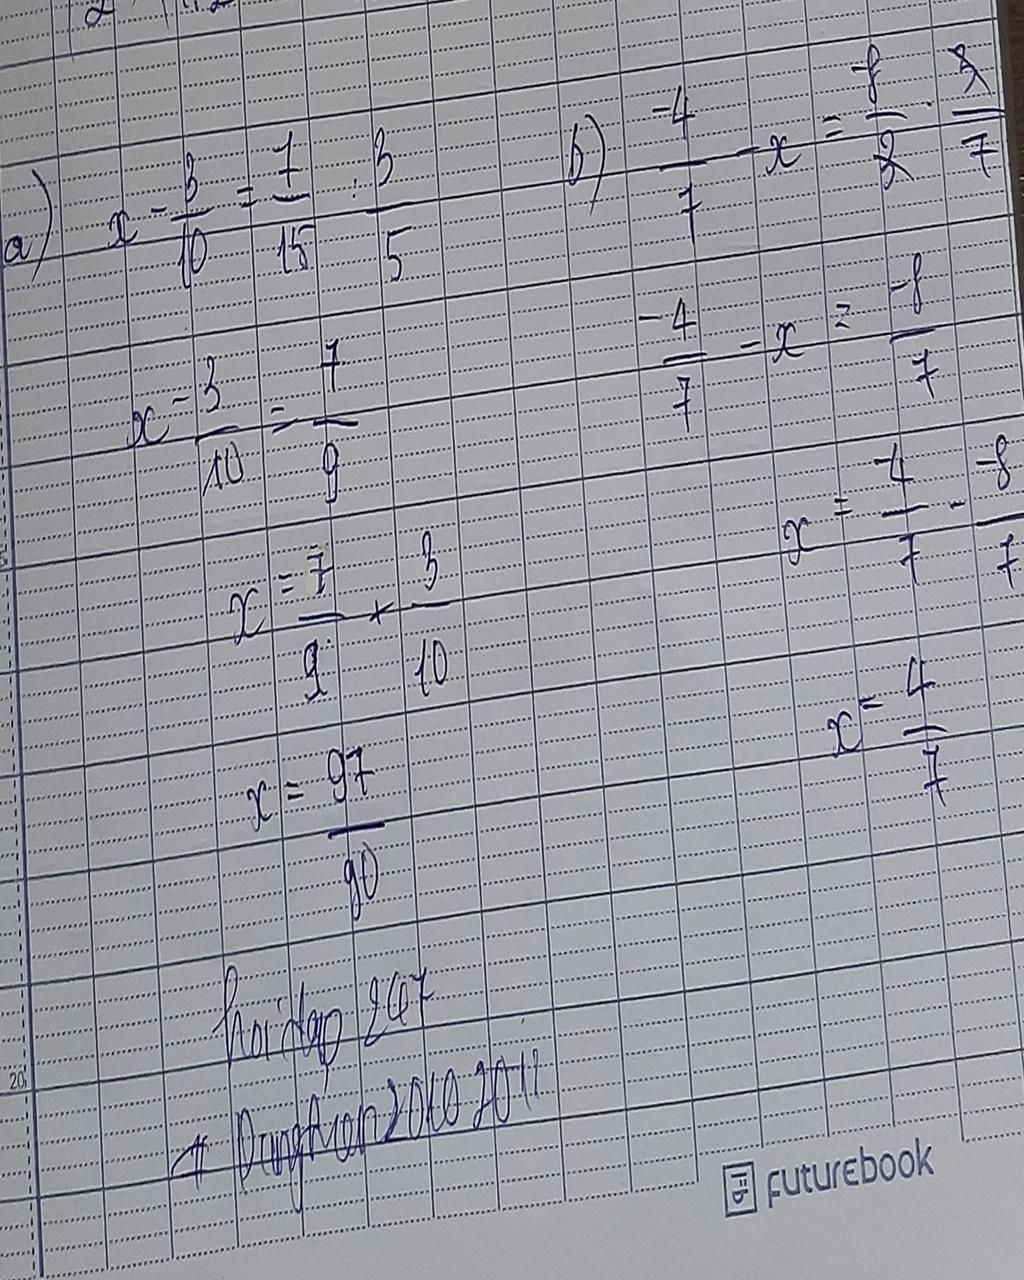 a) x - 3/10 = 7/15 : 3/5
x - 3/10 = 7/9
x = 7/9 + 3/10
x = 97/90
b) -4/7 - x = -8/3 . 3/7
-4/7 - x = -8/7
x = -4/7 - -8/7
x = 4/7
hoidap 247
20
futurebook